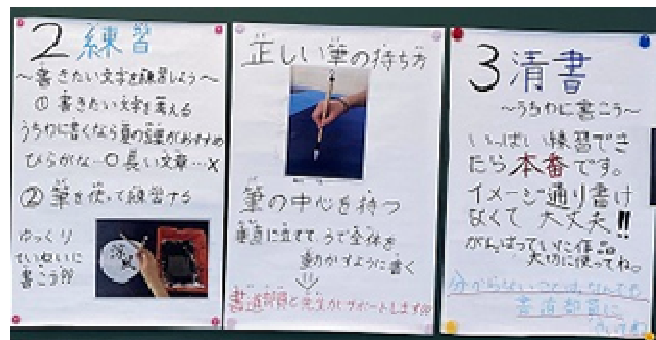 2 練習
～書きたい文字を練習しよう～
① 書きたい文字を考える
うちわに書くなら夏の言葉がおすすめ
ひらがな…○ 長い文章…×
② 筆を使って練習する
ゆっくり
ていねいに
書こう!!
正しい筆の持ち方
筆の中心を持つ
垂直に立てて うで全体を
動かすように書く
書道部員と先生がサポートします!!
3 清書
～うちわに書こう～
いっぱい練習でき
たら本番です。
イメージ通り書け
なくて大丈夫!!
がんばっていた作品
大切に使ってね。
分からないことはなんでも
書道部員に